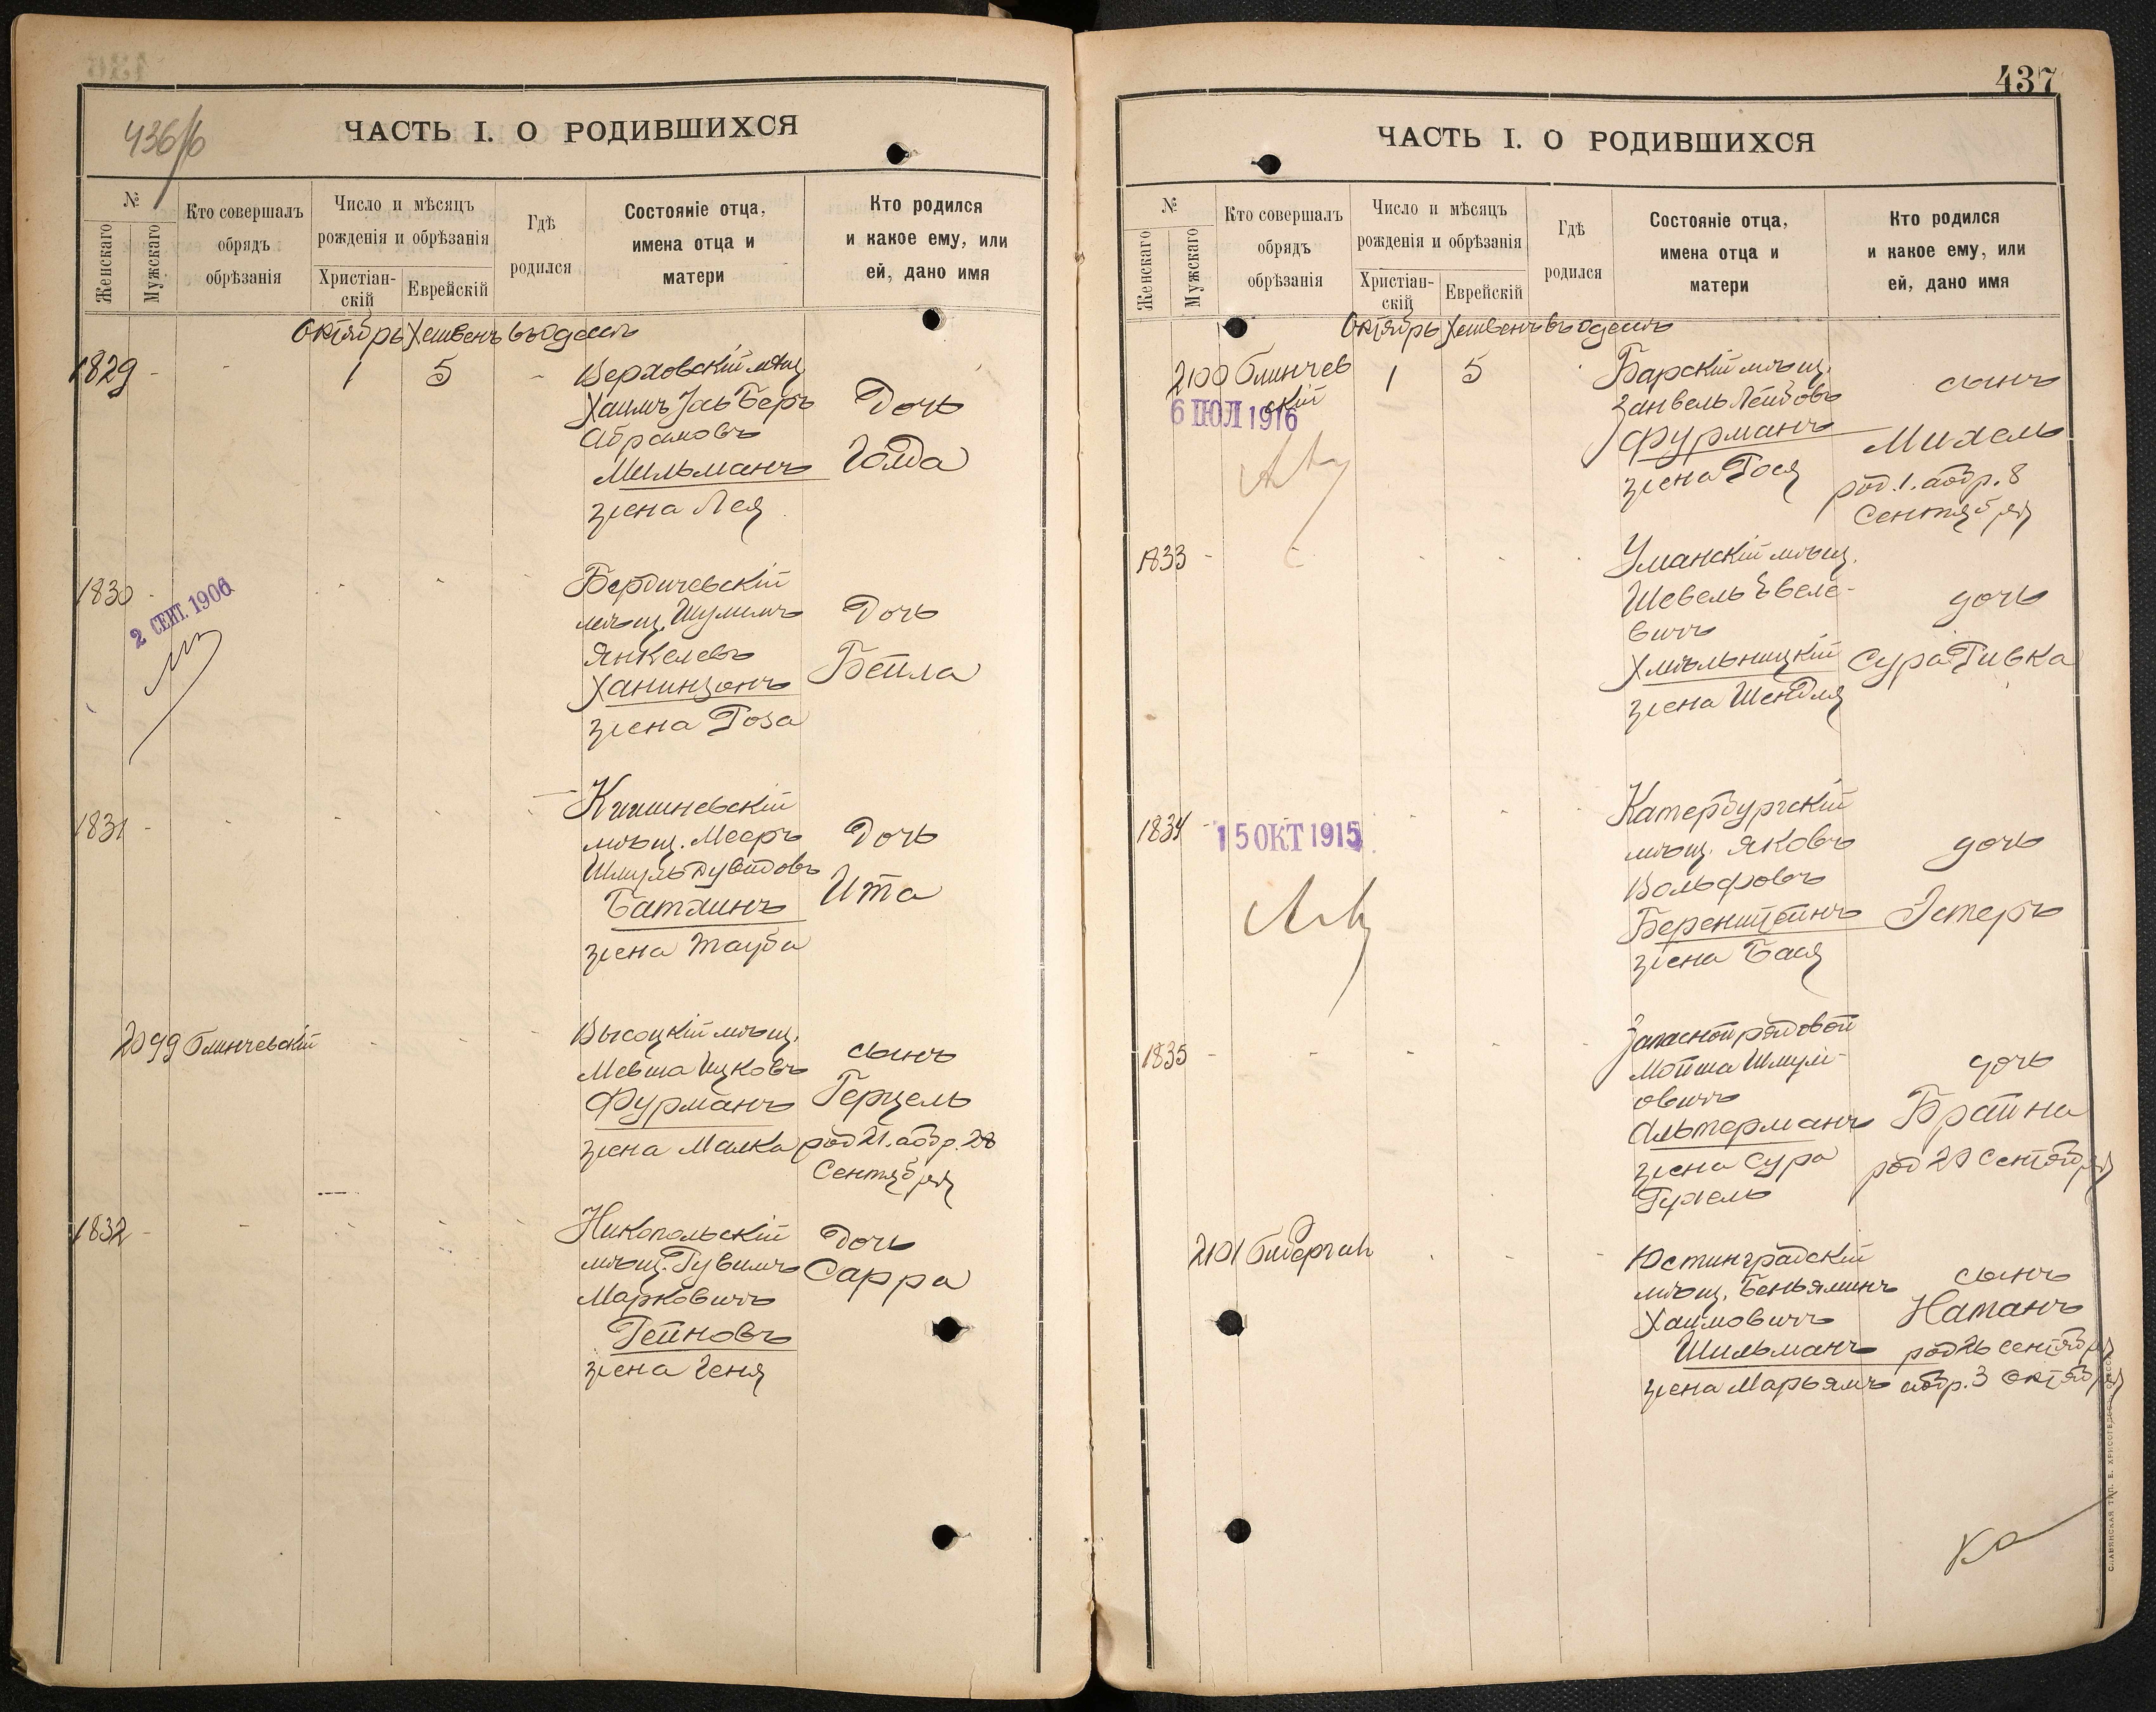 436/б
ЧАСТЬ I. О РОДИВШИХСЯ
№
Женскаго
Мужскаго
Кто совершалъ
обрядъ
обрѣзанія
Число и мѣсяцъ
рожденія и обрѣзанія
Христіан-
скій
Еврейскій
Гдѣ
родился
Состояніе отца,
имена отца и
матери
Кто родился
и какое ему, или
ей, дано имя
Октябрь Хешвенъ въ Одессѣ
1829 - - 1 5 -
Верховскій мѣщ
Хаимъ Іось Беръ
Абрамовъ
Мильманъ
жена Лея
Дочь
Голда
1830
2 СЕНТ. 1906
Бердичевскій
мѣщ. Шулимъ
Янкелевъ
Ханинзонъ
жена Роза
Дочь
Бейла
1831 -
Кишиневскій
мѣщ. Мееръ
Шмуль Дувидовъ
Батлинъ
жена Тауба
Дочь
Ита
2099 Блинчевскій
Высоцкій мѣщ.
Мевша Ицковъ
Фурманъ
жена Малка
сынъ
Герцель
род 21. аобр. 28
Сентября
1832 -
Никопольскій
мѣщ. Рувимъ
Марковичъ
Рейновъ
жена Геня
Дочь
Сарра
437
ЧАСТЬ I. О РОДИВШИХСЯ
№
Женскаго
Мужскаго
Кто совершалъ
обрядъ
обрѣзанія
Число и мѣсяцъ
рожденія и обрѣзанія
Христіан-
скій
Еврейскій
Гдѣ
родился
Состояніе отца,
имена отца и
матери
Кто родился
и какое ему, или
ей, дано имя
Октябрь Хешвенъ въ Одессѣ
2100 Блинчев
скій
1 5
6 ІЮЛ 1916
Барскій мѣщ.
Занвель Лейбовъ
Фурманъ
жена Рося
сынъ
Михель
род. 1. аобр. 8
Сентября
1833 -
Уманскій мѣщ.
Шевель Эвеле-
вичъ
Хмѣльницкій
жена Шендля
дочь
Сура Ривка
1834 -
15 ОКТ 1915
Катербургскій
мѣщ. Яковъ
Вольфовъ
Беренштейнъ
жена Бася
дочь
Эстеръ
1835 -
Запасной рядовой
Мойша Шмул-
овичъ
Альтерманъ
жена Сура
Рухель
дочь
Брайна
род 29 Сентября
2101
Юстинградскій
мѣщ. Беньяминъ
Хаимовичъ
Шильманъ
жена Марьямъ
сынъ
Натанъ
род 26 Сентября
аобр. 3 Октября
СЛАВЯНСКАЯ ТИП. Е. ХРИСОГЕЛОСЪ, ОДЕССА